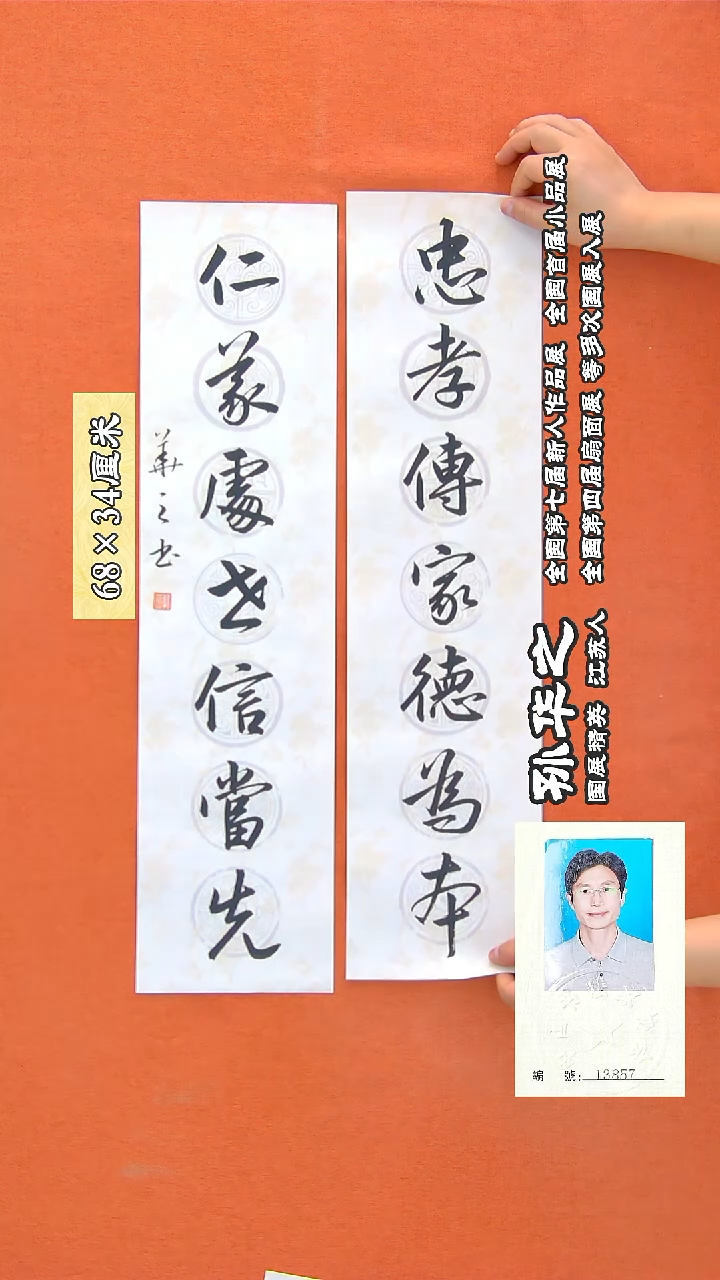 忠孝傳家德為本
仁義處世信當先
華之书
68×34厘米
全国第七届新人作品展 全国首届小品展
全国第四届扇面展 等多次国展入展
孙华之
国展精英 江苏人
編 號: 13857